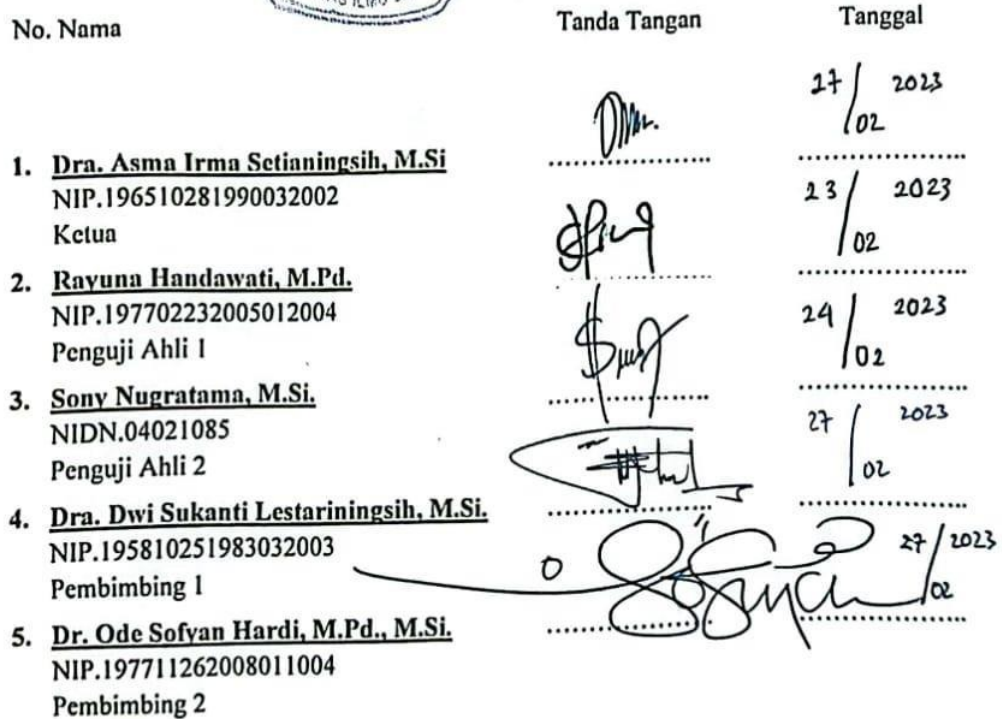 No. Nama Tanda Tangan Tanggal
27/02 2023
1. Dra. Asma Irma Setianingsih, M.Si
NIP.196510281990032002
Ketua
23/02 2023
2. Rayuna Handawati, M.Pd.
NIP.197702232005012004
Penguji Ahli 1
24/02 2023
3. Sony Nugratama, M.Si.
NIDN.04021085
Penguji Ahli 2
27/02 2023
4. Dra. Dwi Sukanti Lestariningsih, M.Si.
NIP.195810251983032003
Pembimbing 1
27/02 2023
5. Dr. Ode Sofyan Hardi, M.Pd., M.Si.
NIP.197711262008011004
Pembimbing 2